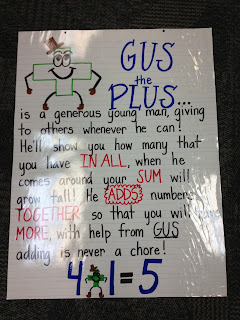 GUS
the
PLUS...
is a generous young man, giving
to others whenever he can!
He'll show you how many that
you have IN ALL, when he
comes around your SUM will
grow tall! He ADDS numbers
TOGETHER so that you will have
MORE, with help from GUS
adding is never a chore!
4 1=5